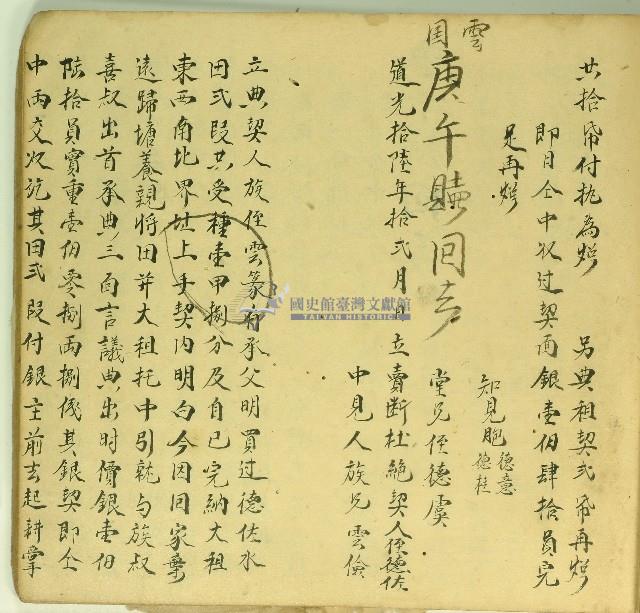 共拾帋付执為炤　另典租契弍帋再炤
即日仝中收过契面銀壹伯肆拾員完
足再炤
知見胞德意
德桂
雲
庚午贖回去
堂兄侄德虞
道光拾陸年拾弍月　日立賣斷杜絶契人侄德佐
中見人族兄雲儉
立典契人族侄雲篆有承父明買过德佐水
田弍段共受種壹甲捌分及自已完納大租
東西南北界址上手契内明白今因回家棄
遠歸塘養親將田并大租托中引就与族叔
喜叔出首承典三面言議典出时價銀壹伯
陸拾員實重壹伯零捌両捌伐其銀契即仝
中両交收訖其田弍段付銀主前去起耕掌
國史館臺灣文獻館
TAIWAN HISTORICA